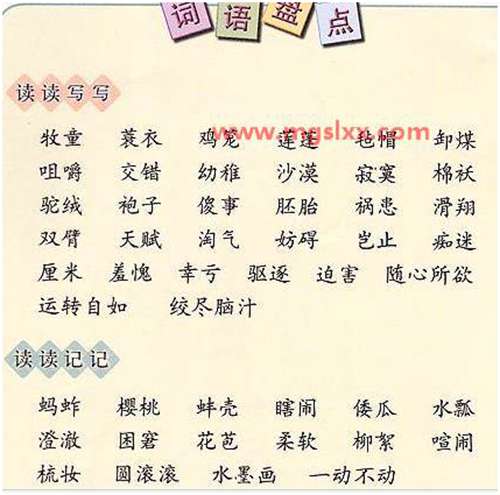 词语盘点
读读写写
www.mgslxx.com
牧童 蓑衣 鸡笼 莲蓬 毡帽 卸煤
咀嚼 交错 幼稚 沙漠 寂寞 棉袄
驼绒 袍子 傻事 胚胎 祸患 滑翔
双臂 天赋 淘气 妨碍 岂止 痴迷
厘米 羞愧 幸亏 驱逐 迫害 随心所欲
运转自如 绞尽脑汁
读读记记
蚂蚱 樱桃 蚌壳 瞎闹 倭瓜 水瓢
澄澈 困窘 花苞 柔软 柳絮 喧闹
梳妆 圆滚滚 水墨画 一动不动